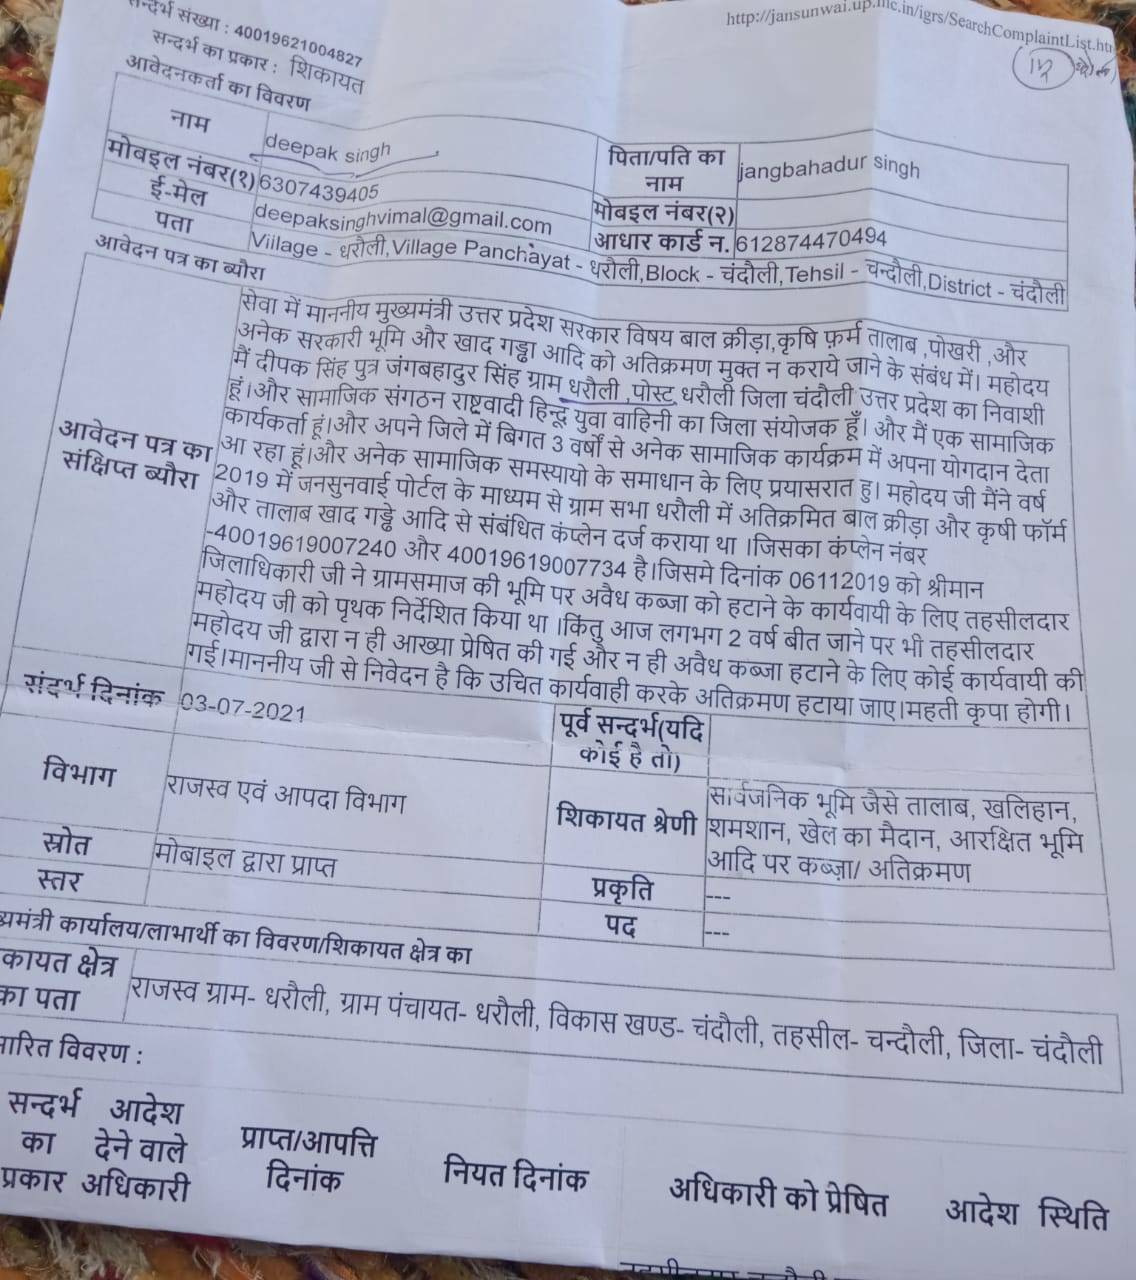 सन्दर्भ संख्या : 40019621004827
http://jansunwai.up.nic.in/igrs/SearchComplaintList.ht
सन्दर्भ का प्रकार : शिकायत
आवेदनकर्ता का विवरण
नाम deepak singh पिता/पति का नाम jangbahadur singh
मोबइल नंबर(१) 6307439405 मोबइल नंबर(२)
ई-मेल deepaksinghvimal@gmail.com आधार कार्ड न. 612874470494
पता Viilage - धरौली,Village Panchayat - धरौली,Block - चंदौली,Tehsil - चन्दौली,District - चंदौली
आवेदन पत्र का ब्यौरा
आवेदन पत्र का संक्षिप्त ब्यौरा
सेवा में माननीय मुख्यमंत्री उत्तर प्रदेश सरकार विषय बाल क्रीड़ा,कृषि फ़र्म तालाब ,पोखरी ,और
अनेक सरकारी भूमि और खाद गड्ढा आदि को अतिक्रमण मुक्त न कराये जाने के संबंध में। महोदय
मैं दीपक सिंह पुत्र जंगबहादुर सिंह ग्राम धरौली ,पोस्ट धरौली जिला चंदौली उत्तर प्रदेश का निवाशी
हूं।और सामाजिक संगठन राष्ट्रवादी हिन्दू युवा वाहिनी का जिला संयोजक हूँ। और मैं एक सामाजिक
कार्यकर्ता हूं।और अपने जिले में बिगत 3 वर्षों से अनेक सामाजिक कार्यक्रम में अपना योगदान देता
आ रहा हूं।और अनेक सामाजिक समस्यायो के समाधान के लिए प्रयासरात हु। महोदय जी मैंने वर्ष
2019 में जनसुनवाई पोर्टल के माध्यम से ग्राम सभा धरौली में अतिक्रमित बाल क्रीड़ा और कृषी फॉर्म
और तालाब खाद गड्ढे आदि से संबंधित कंप्लेन दर्ज कराया था ।जिसका कंप्लेन नंबर
-40019619007240 और 40019619007734 है।जिसमे दिनांक 06112019 को श्रीमान
जिलाधिकारी जी ने ग्रामसमाज की भूमि पर अवैध कब्जा को हटाने के कार्यवायी के लिए तहसीलदार
महोदय जी को पृथक निर्देशित किया था ।किंतु आज लगभग 2 वर्ष बीत जाने पर भी तहसीलदार
महोदय जी द्वारा न ही आख्या प्रेषित की गई और न ही अवैध कब्जा हटाने के लिए कोई कार्यवायी की
गई।माननीय जी से निवेदन है कि उचित कार्यवाही करके अतिक्रमण हटाया जाए।महती कृपा होगी।
संदर्भ दिनांक 03-07-2021 पूर्व सन्दर्भ(यदि कोई है तो)
विभाग राजस्व एवं आपदा विभाग शिकायत श्रेणी सार्वजनिक भूमि जैसे तालाब, खलिहान,
शमशान, खेल का मैदान, आरक्षित भूमि
आदि पर कब्ज़ा/ अतिक्रमण
स्रोत मोबाइल द्वारा प्राप्त प्रकृति ---
स्तर पद ---
कार्यालय/लाभार्थी का विवरण/शिकायत क्षेत्र का
कायत क्षेत्र
का पता राजस्व ग्राम- धरौली, ग्राम पंचायत- धरौली, विकास खण्ड- चंदौली, तहसील- चन्दौली, जिला- चंदौली
विवरण :
सन्दर्भ का प्रकार आदेश देने वाले अधिकारी प्राप्त/आपत्ति दिनांक नियत दिनांक अधिकारी को प्रेषित आदेश स्थिति